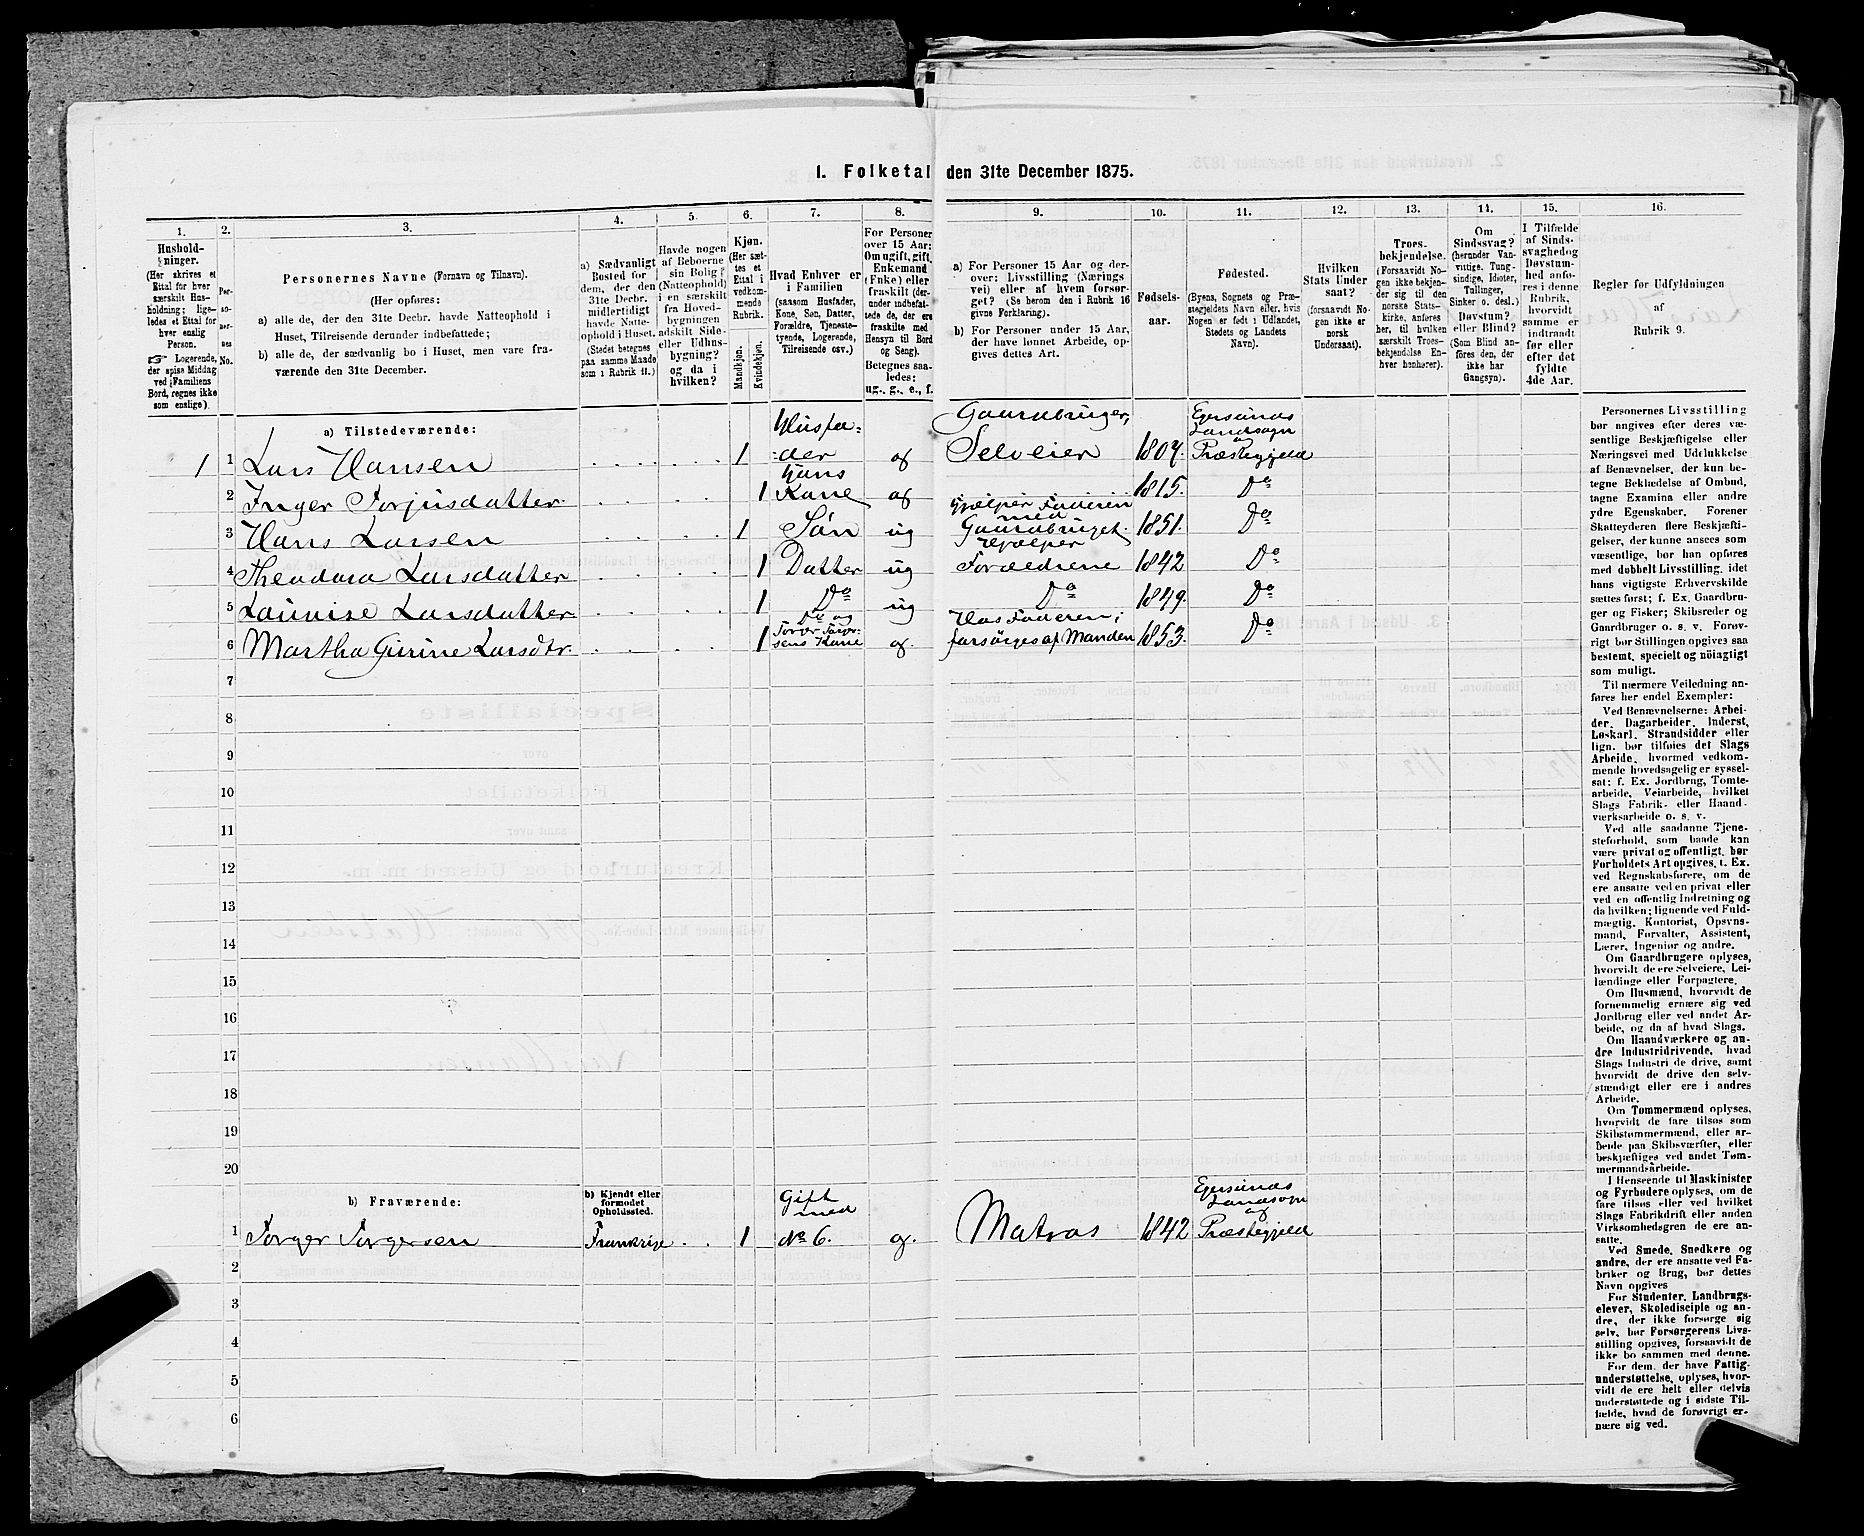 1. Folketal den 31te December 1875.
1. 2. 3. 4. 5. 6. 7. 8. 9. 10. 11. 12. 13. 14. 15. 16.
Hushold-
ninger.
(Her skrives et
Ettal for hver
særskilt Hus-
holdning; lige-
ledes et Ettal for
hver enslig
Person.
☞ Logerende,
der spise Middag
ved Familiens
Bord, regnes ikke
som enslige).
Per-
so-
ner-
nes
No.
Personernes Navne (Fornavn og Tilnavn).
(Her opføres:
a) alle de, der den 31te Decbr. havde Natteophold i
Huset, Tilreisende derunder indbefattede;
b) alle de, der sædvanlig bo i Huset, men vare fra-
værende den 31te December.
a) Sædvanligt
Bosted for
dem, der den
31te Decbr.
midlertidigt
havde Natte-
ophold i Huset.
(Stedet betegnes
paa samme Maade
som i Rubrik 11.)
Havde nogen
af Beboerne
sin Bolig
(Natteophold)
i en særskilt
fra Hoved-
bygningen
adskilt Side-
eller Udhus-
bygning?
og da i
hvilken?
Kjøn.
(Her sæt-
tes et
Ettal i
vedkom-
mende
Rubrik.
Mandkjøn.
Kvindekjøn.
Hvad Enhver er
i Familien
(saasom Husfader,
Kone, Søn, Datter,
Forældre, Tjeneste-
tyende, Logerende,
Tilreisende osv.)
For Personer
over 15 Aar:
Om ugift, gift,
Enkemand
(Enke) eller
fraskilt (der-
under indbefat-
tede de, der ere
fraskilte med
Hensyn til Bord
og Seng).
Betegnes saa-
ledes:
ug., g., e., f.
a) For Personer 15 Aar og der-
over: Livsstilling (Nærings-
vei) eller af hvem forsør-
get? (Se herom den i Rubrik 16
givne Forklaring).
b) For Personer under 15 Aar,
der have lønnet Arbeide, op-
gives dettes Art.
Fødsels-
aar.
Fødested.
(Byens, Sognets og Præ-
stegjeldets Navn eller, hvis
Nogen er født i Udlandet,
Stedets og Landets
Navn).
Hvilken
Stats Under
saat?
(forsaavidt No-
gen ikke er
norsk
Undersaat).
Troes-
bekjendelse.
(Forsaavidt No-
gen ikke bekjen-
der sig til den
norske Stats-
kirke, anføres
her, til hvilken
særskilt Troes-
bekjendelse En-
hver henhører).
Om
Sindssvag?
(herunder Van-
vittige, Tung-
sindige, Idioter,
Tullinger,
Sinker o. desl.)
Døvstum?
eller Blind?
(Som Blind an-
føres den, der
ikke har
Gangsyn).
I Tilfælde
af Sinds-
svaghed og
Døvstum-
hed anfø-
res i denne
Rubrik,
hvorvidt
samme er
indtraadt
før eller
efter det
fyldte
4de Aar.
Regler for Udfyldningen
af
Rubrik 9.
a) Tilstedeværende:
1 1 Lars Hansen 1 Husfa-
der g Gaardbruger, Selveier 1809. Egersunds Landsogn og Præstegjeld
2 Inger Torjusdatter 1 Hans Kone g 1815. Do
3 Hans Larsen 1 Søn ug Hjælper Faderen med Gaardbruget. 1851. Do
4 Theodora Larsdatter 1 Datter ug Hjælper Forældrene 1842 Do
5 Lauvise Larsdatter 1 Do ug Do 1849. Do
6 Martha Gurine Larsdtr. 1 Do og Torger Torger-
sens Kone g. Hos Faderen; forsørges af Manden 1853. Do
7
8
9
10
11
12
13
14
15
16
17
18
19
20
b) Fraværende: b) Kjendt eller
formodet
Opholdssted.
1 Torger Torgersen Frankrige 1 Gift med No 6. g. Matros 1842 Egersunds Landsogn og Præstegjeld
2
3
4
5
6
Personernes Livsstilling
bør angives efter deres væ-
sentlige Beskjæftigelse eller
Næringsvei med Udelukkelse
af Benævnelser, der kun be-
tegne Beklædelse af Ombud,
tagne Examina eller andre
ydre Egenskaber. Forener
Skatteyderen flere Beskjæfti-
gelser, der kunne ansees som
væsentlige, bør han opføres
med dobbelt Livsstilling, idet
hans vigtigste Erhvervskilde
sættes først; f. Ex. Gaardbru-
ger og Fisker; Skibsreder og
Gaardbruger o. s. v. Forøv-
rigt bør Stillingen opgives saa
bestemt, specielt og nöiagtigt
som muligt.
Til nærmere Veiledning an-
føres her endel Exempler:
Ved Benævnelserne: Arbei-
der, Dagarbeider, Inderst,
Løskarl, Strandsidder eller
lign. bør tilføies det Slags
Arbeide, hvormed vedkom-
mende hovedsagelig er syssel-
sat; f. Ex. Jordbrug, Tomte-
arbeide, Veiarbeide, hvilket
Slags Fabrik- eller Haand-
værksarbeide o. s. v.
Ved alle saadanne Tjene-
steforhold, som baade kan
være privat og offentligt, bør
Forholdets Art opgives, t. Ex.
ved Regnskabsførere, om de
ere ansatte ved en privat eller
ved en offentlig Indretning og
da hvilken; lignende ved Fuld-
mægtig, Kontorist, Opsyns-
mand, Forvalter, Assistent,
Lærer, Ingeniør og andre.
Om Gaardbrugere oplyses,
hvorvidt de ere Selveiere, Lei-
lændinge eller Forpagtere.
Om Husmænd, hvorvidt de
fornemmelig ernære sig ved
Jordbrug eller ved andet Ar-
beide, og da af hvad Slags.
Om Haandværkere og an-
dre Industridrivende, hvad
Slags Industri de drive, samt
hvorvidt de drive den selv-
stændigt eller ere i andres
Arbeide.
Om Tømmermænd oplyses,
hvorvidt de fare tilsøs som
Skibstømmermænd, eller ar-
beide paa Skibsværfter, eller
beskjæftiges ved andet Tøm-
mermandsarbeide.
I Henseende til Maskinister
og Fyrbødere oplyses, om de
fare tilsøs eller ved hvilket
Slags Fabrikdrift eller anden
Virksomhedsgren de ere an-
satte.
Ved Smede, Snedkere og
andre, der ere ansatte ved Fa-
briker og Brug, bør dettes
Navn opgives
For Studenter, Landbrugs-
elever, Skoledisciple og an-
dre, der ikke forsørge sig
selv, bør Forsørgerens Livs-
stilling opgives, forsaavidt de
ikke bo sammen med denne.
For dem, der have Fattig-
understøttelse, oplyses, hvor-
vidt de ere helt eller delvis
understøttede og i sidste Til-
fælde, hvad de forøvrigt er-
nære sig ved.